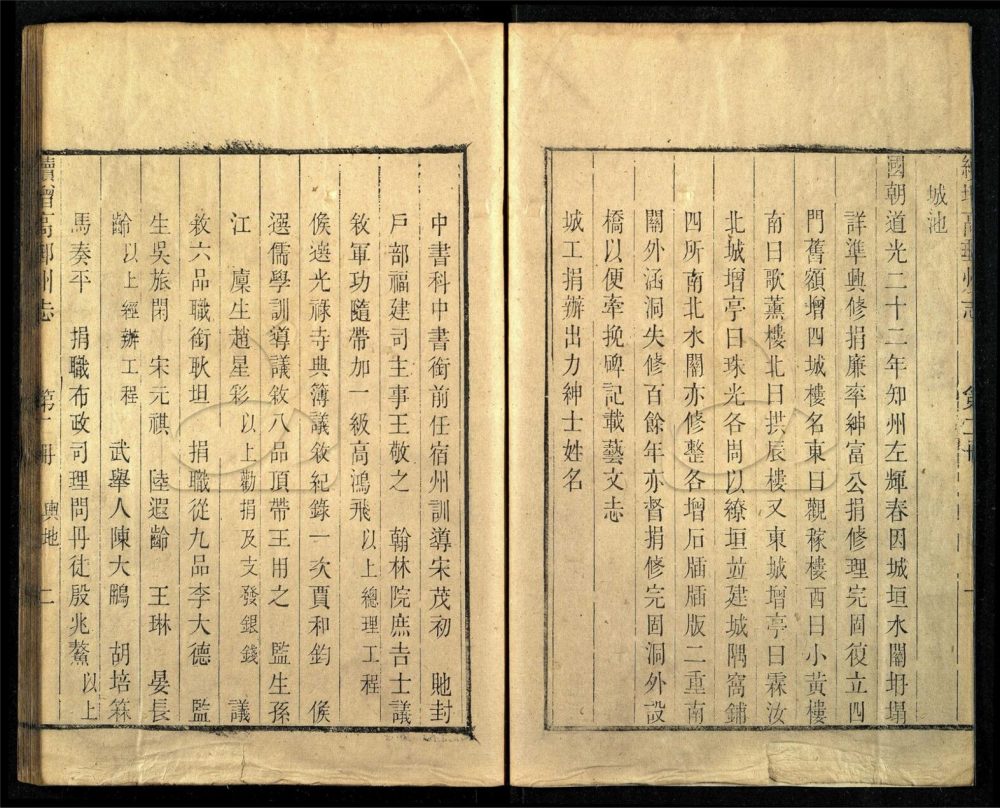 續增高郵州志 第一冊
城池
國朝道光二十二年知州左輝春因城垣水關坍塌
詳準興修捐廉率紳富公捐修理完固復立四
門舊額增四城樓名東曰觀稼樓西曰小黃樓
南曰歌薰樓北曰拱辰樓又東城增亭曰霖汝
北城增亭曰珠光各問以繚垣並建城隅窩鋪
四所南北水關亦修整各增石牐牐版二重南
關外涵洞失修百餘年亦督捐修完固洞外設
橋以便牽挽碑記載藝文志
城工捐辦出力紳士姓名
中書科中書銜前任宿州訓導宋茂初 貤封
戶部福建司主事王敬之 翰林院庶吉士議
敘軍功隨帶加一級高鴻飛以上總理工程
候選光祿寺典簿議敘紀錄一次賈和鈞 候
選儒學訓導議敘八品頂帶王用之 監生孫
江 廩生趙星彩以上勸捐及支發銀錢 議
敘六品職銜耿坦 捐職從九品李大德 監
生吳旅閑 宋元祺 陸遐齡 王琳 晏長
齡以上經辦工程 武舉人陳大鵬 胡培森
馬奏平 捐職布政司理問丹徒殷兆鰲以上
續增高郵州志 第一冊 輿地 二